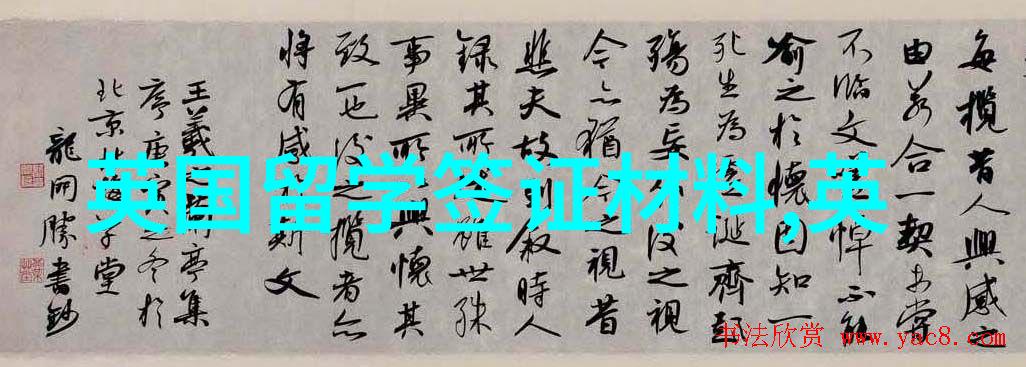 每攬昔人興感之
由若合一契未嘗
不臨文嗟悼不能
喻之於懷固知一
死生為虛誕齊彭
殤為妄作後之視
今亦猶今之視昔
悲夫故列敘時人
錄其所雖世殊
事異所興懷其
致一也後之攬者亦
將有感斯文
王羲亭集
序庚寅之冬於
北京堂
龍開勝書鈔
英国留学签证材料,英
书法欣赏 www.yac8.com